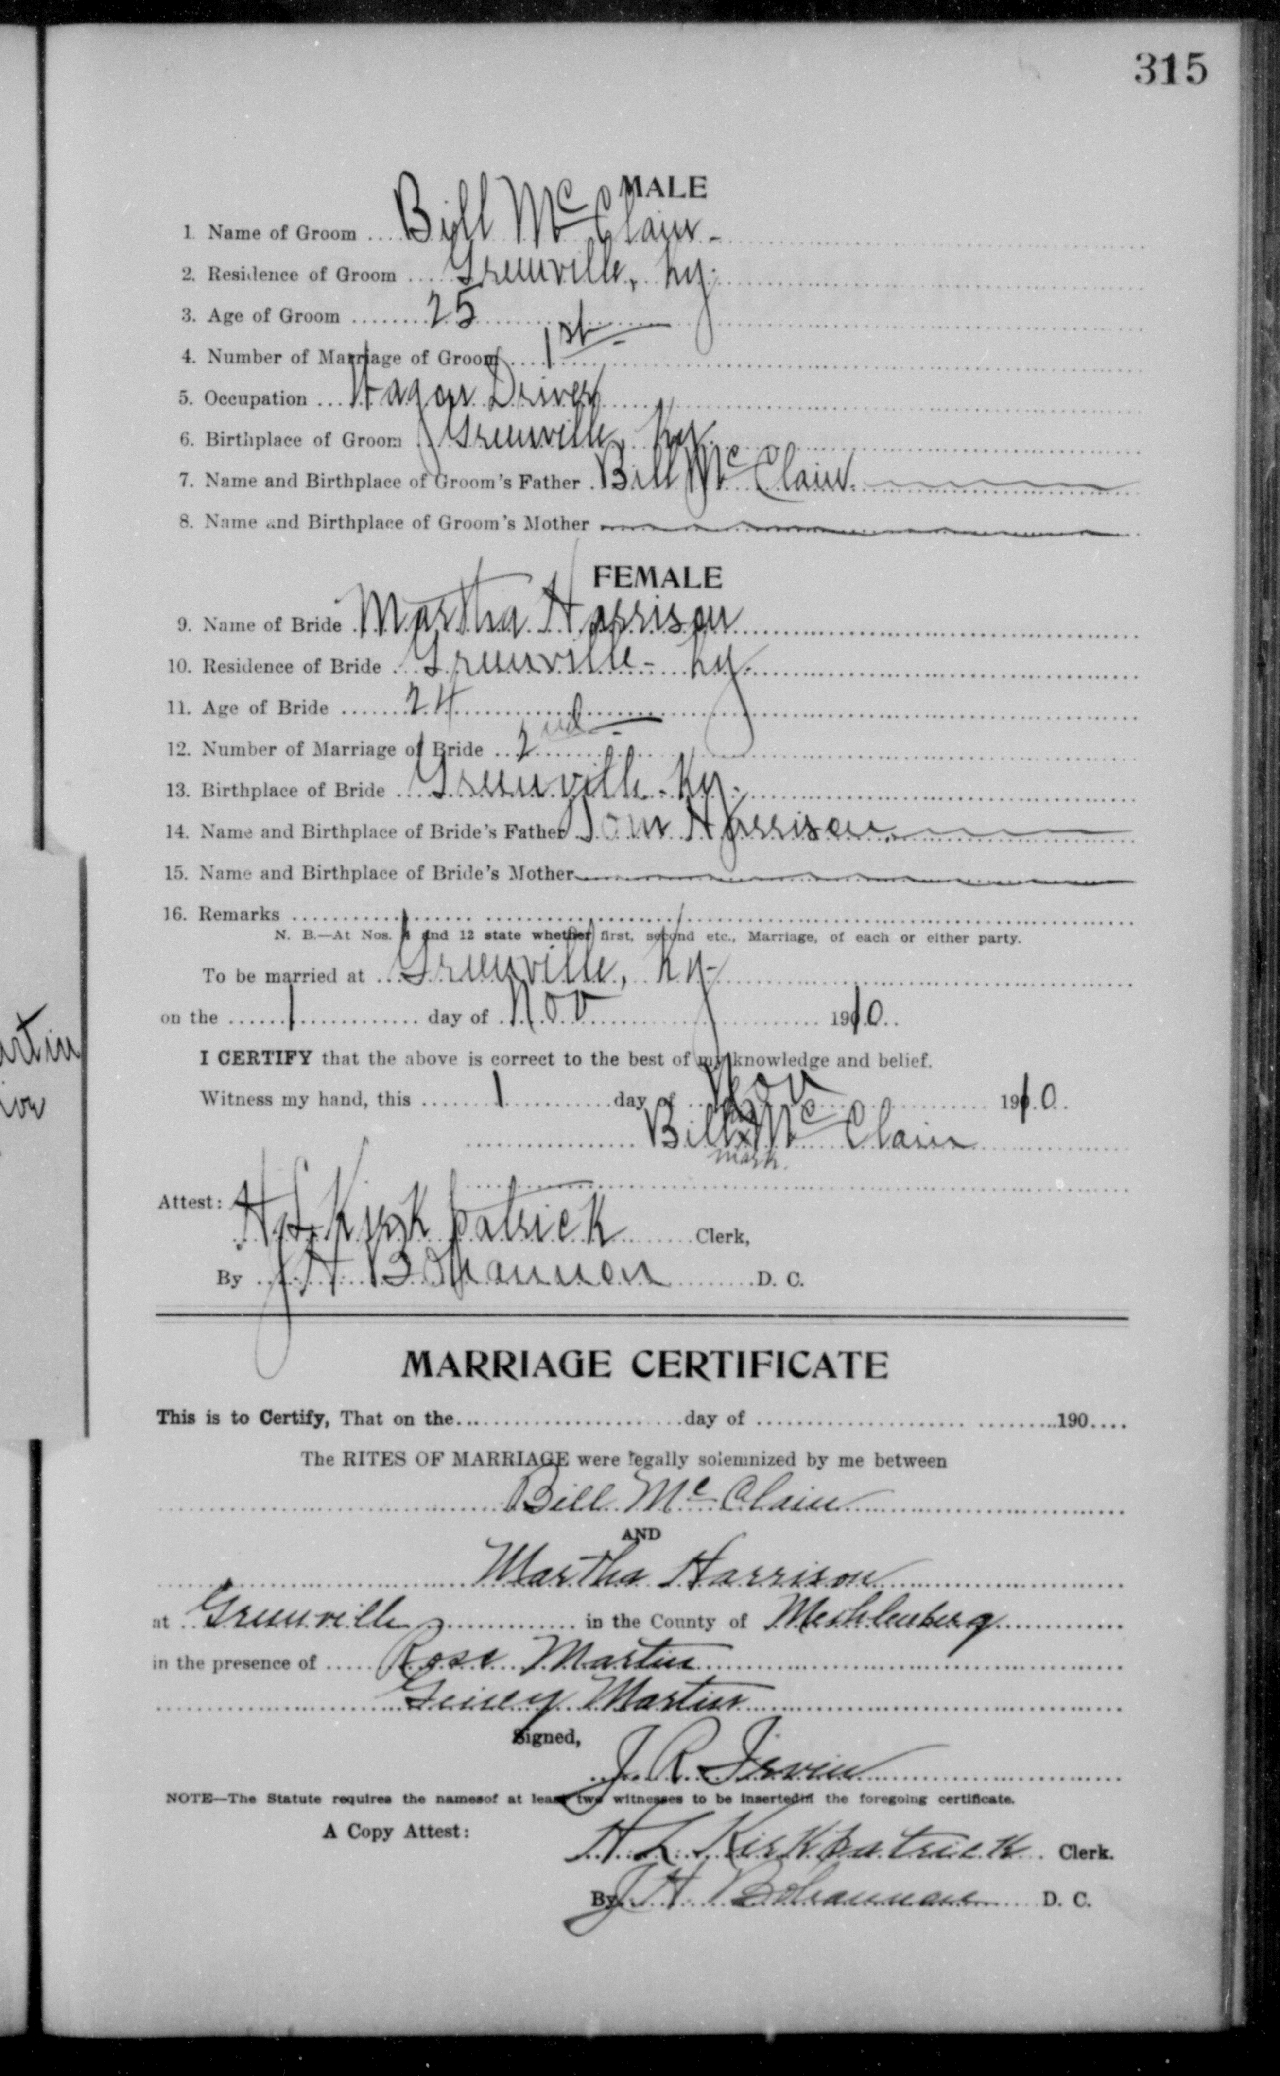 315
MALE
1. Name of Groom Bill McClain
2. Residence of Groom Greenville, Ky.
3. Age of Groom 25
4. Number of Marriage of Groom 1st
5. Occupation Wagon Driver
6. Birthplace of Groom Greenville, Ky.
7. Name and Birthplace of Groom's Father Bill McClain.
8. Name and Birthplace of Groom's Mother
FEMALE
9. Name of Bride Martha Harrison
10. Residence of Bride Greenville - Ky.
11. Age of Bride 24
12. Number of Marriage of Bride 2nd
13. Birthplace of Bride Greenville - Ky.
14. Name and Birthplace of Bride's Father Tom Harrison.
15. Name and Birthplace of Bride's Mother
16. Remarks
N. B.—At Nos. 4 and 12 state whether first, second etc., Marriage, of each or either party.
To be married at Greenville, Ky.
on the 1 day of Nov 1910
I CERTIFY that the above is correct to the best of my knowledge and belief.
artin
Witness my hand, this 1 day of Nov 1910
Bill x McClain
mark.
Attest:
H. L. Kirkpatrick Clerk,
By J H Bohannon D. C.
MARRIAGE CERTIFICATE
This is to Certify, That on the day of 190
The RITES OF MARRIAGE were legally solemnized by me between
Bill McClain
AND
Martha Harrison
at Greenville in the County of Mechlenberg
in the presence of Rose Martin
Martin
Signed,
J. R. Irvin
NOTE—The Statute requires the namesof at least two witnesses to be insertedin the foregoing certificate.
A Copy Attest:
H. L. Kirkpatrick Clerk.
By J H Bohannon D. C.